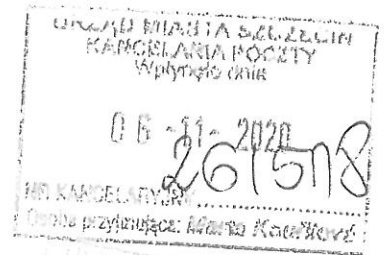 URZĄD MIASTA SZCZECIN
KANCELARIA POCZTY
Wpłynęło dnia
06 -11- 2020
261578
NR KANCELARYJNY
Osoba przyjmująca: Marta